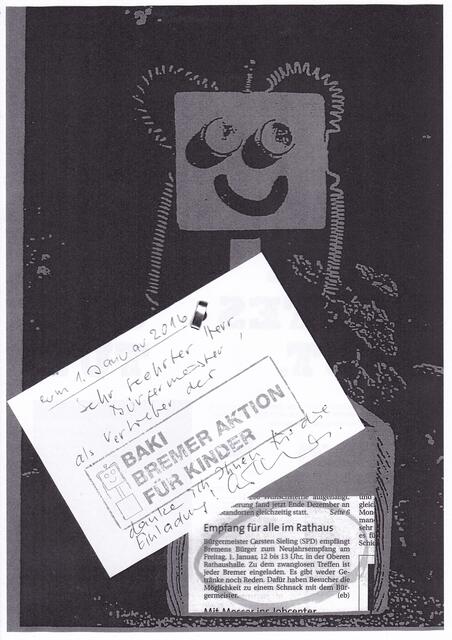 zum 1. Januar 2016
Sehr geehrter Herr
Bürgermeister,
als Vertreter der
BAKI
BREMER AKTION
FÜR KINDER
danke ich Ihnen für die
Einladung!
200 Wunschsterne aufgehängt.
erung fand jetzt Ende Dezember an
standorten gleichzeitig statt. Seite 6
Empfang für alle im Rathaus
Bürgermeister Carsten Sieling (SPD) empfängt
Bremens Bürger zum Neujahrsempfang am
Freitag, 1. Januar, 12 bis 13 Uhr, in der Oberen
Rathaushalle. Zu dem zwanglosen Treffen ist
jeder Bremer eingeladen. Es gibt weder Ge-
tränke noch Reden. Dafür haben Besucher die
Möglichkeit zu einem Schnack mit dem Bür-
germeister. (eb)
Mit Messer ins Jobcenter